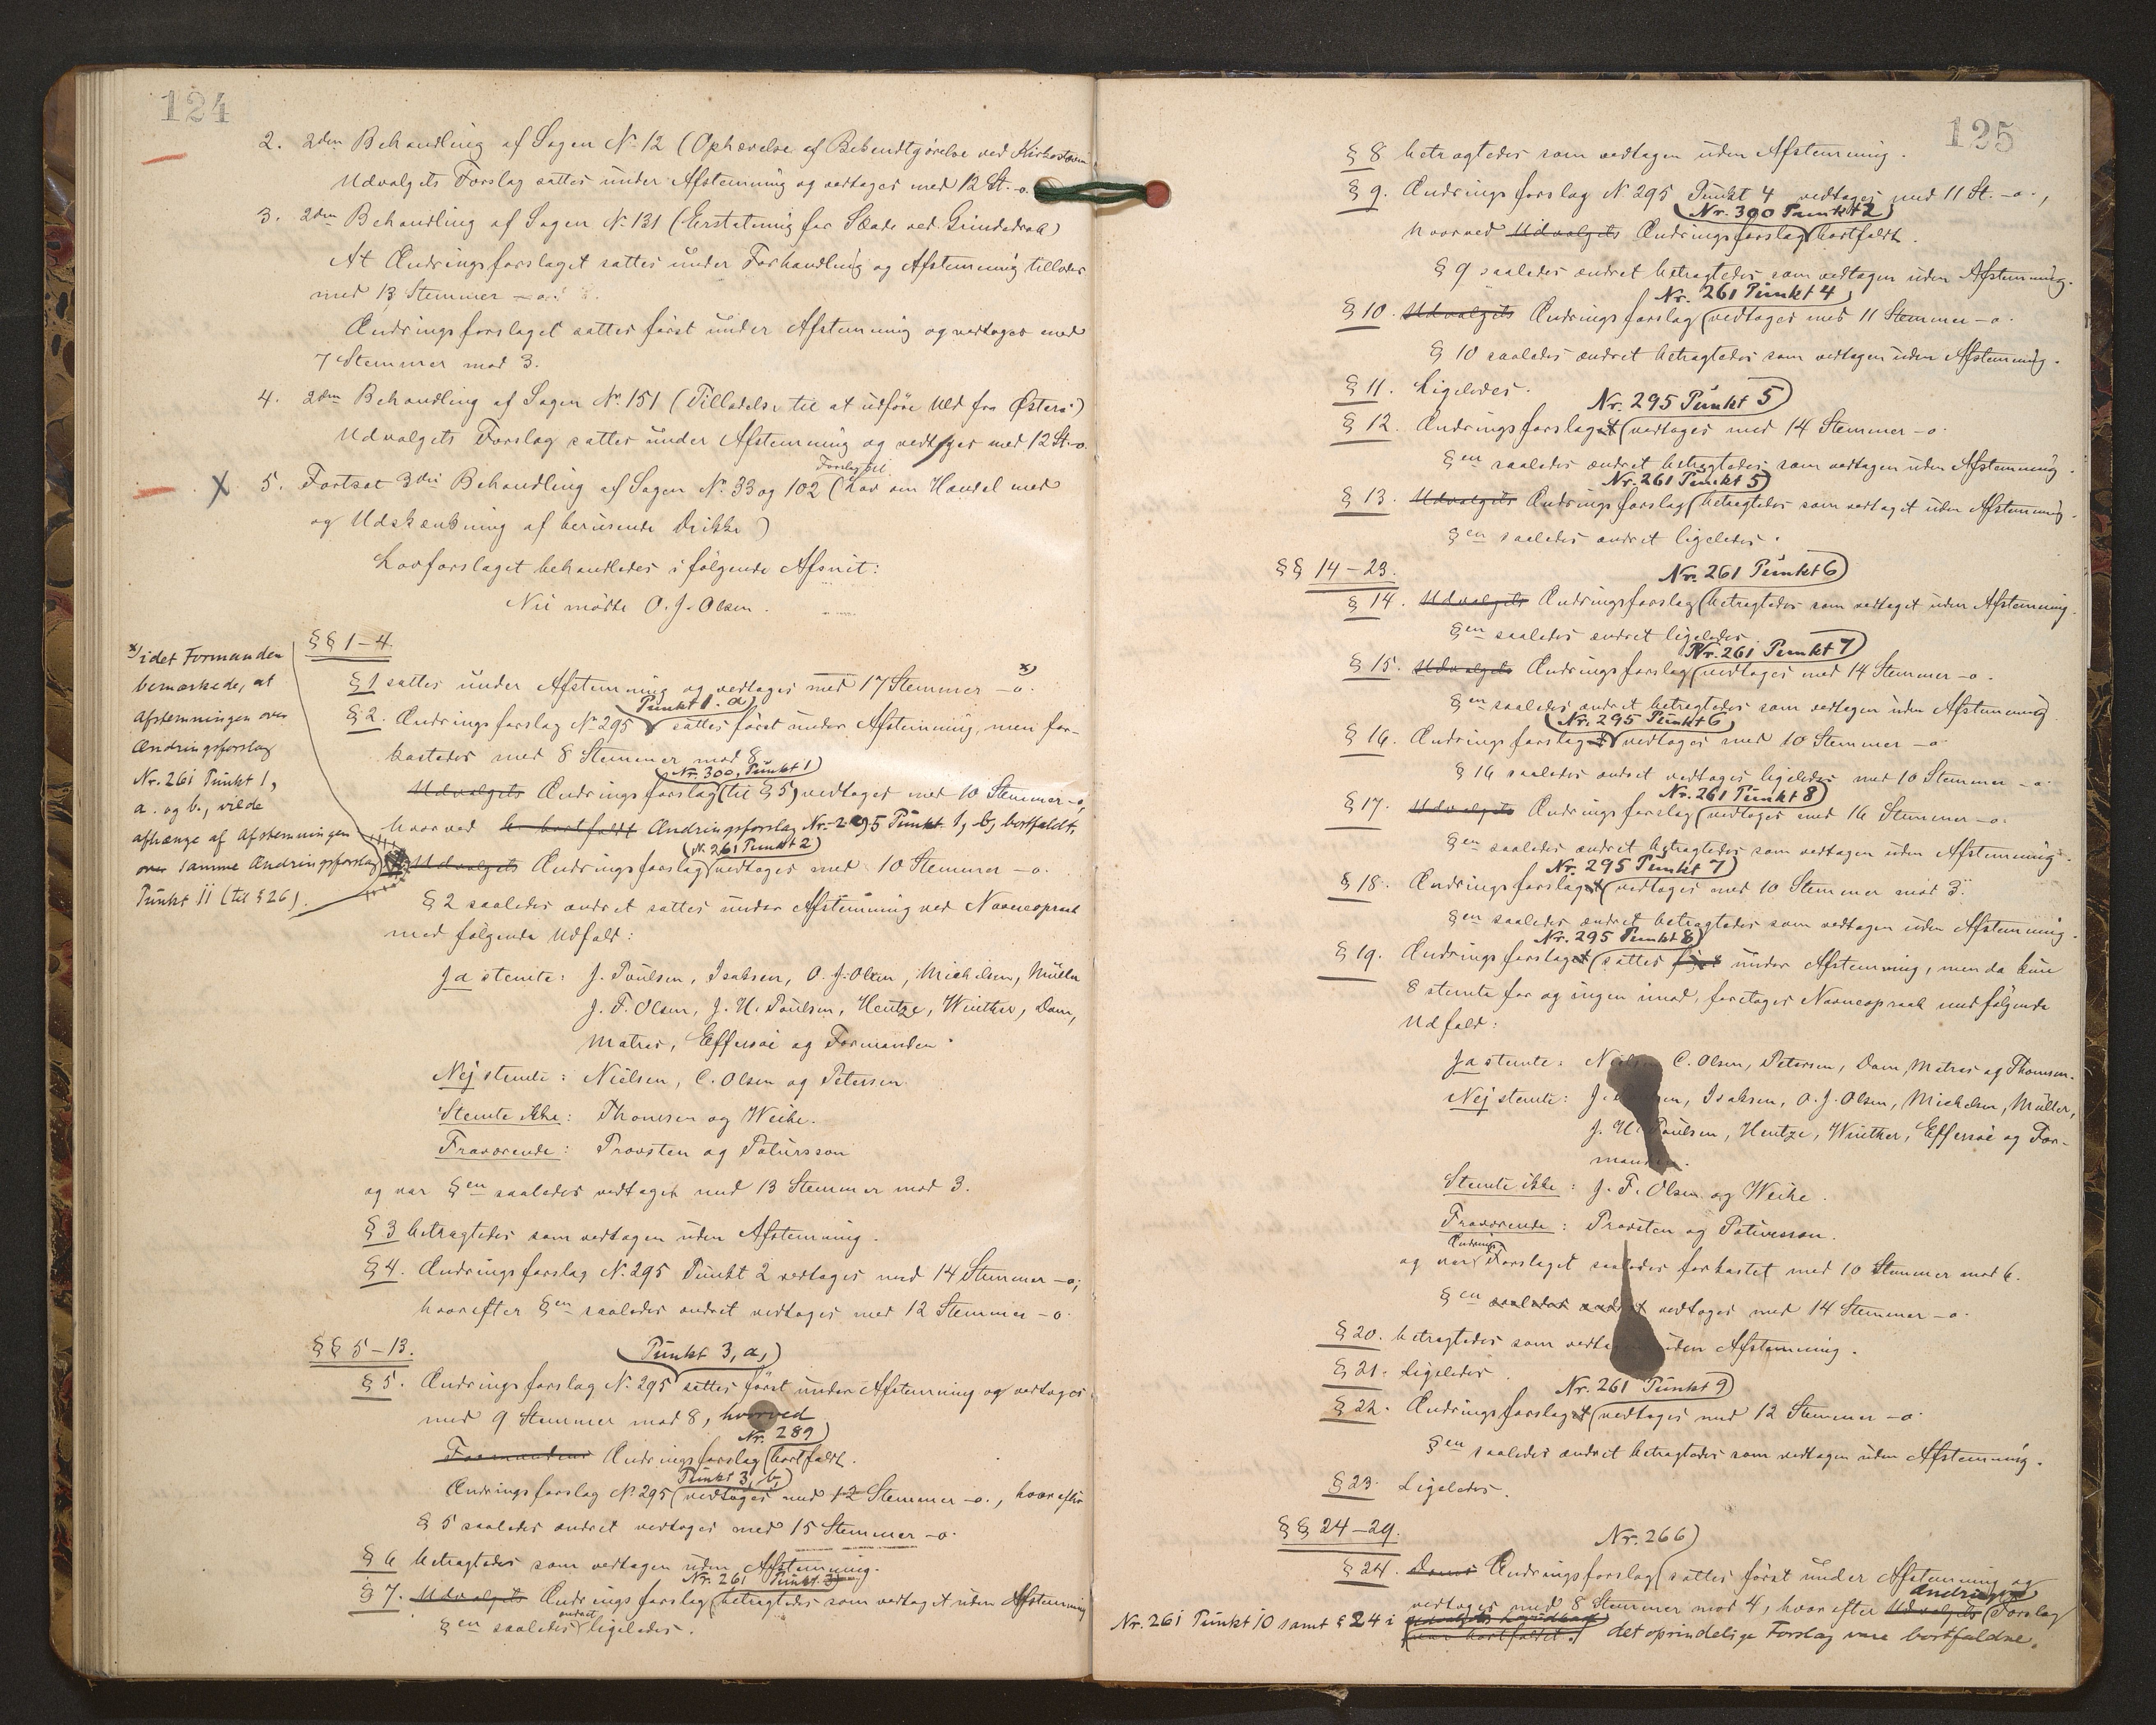 124
2. 2den Behandling af Sagen Nº 12 (Ophævelse af Bekendtgørelse ved Kirkestævne
Udvalgets Forslag sattes under Afstemning og vedtoges med 12 St. - o.
3. 2den Behandling af Sagen Nº 131 (Erstatning for Skade ved Grindedrab)
At Ændringsforslaget sattes under Forhandling og Afstemning tillodes
med 13 Stemmer - o.
Ændringsforslaget sattes først under Afstemning og vedtoges med
7 Stemmer mod 3.
4. 2den Behandling af Sagen Nr. 151 (Tilladelse til at udføre Uld fra Østerø)
Udvalgets Forslag sattes under Afstemning og vedtoges med 12 St. - o.
X 5. Fortsat 3die Behandling af Sagen Nº 33 og 102 (Forslag til Lov om Handel med
og Udskænkning af berusende Drikke)
Lovforslaget behandledes i følgende Afsnit:
Nu mødte O. J. Olsen.
§§ 1-4.
x) idet Formanden
bemærkede, at
Afstemningen over
Ændringsforslag
Nr. 261 Punkt 1,
a. og b., vilde
afhænge af Afstemningen
over samme Ændringsforslag
Punkt 11 (til § 26).
§ 1 sattes under Afstemning og vedtoges med 17 Stemmer - o. x)
Punkt 1. a)
§ 2. Ændringsforslag Nº 295 sattes først under Afstemning, men for-
kastedes med 8 Stemmer mod 8.
Nr. 300, Punkt 1)
Udvalgets Ændringsforslag (til § 5) vedtoges med 10 Stemmer - o,
hvorved b bortfaldt Ændringsforslag Nr. 295 Punkt 1, b, bortfaldt,
N. 261 Punkt 2)
Udvalgets Ændringsforslag vedtoges med 10 Stemmer - o.
§ 2 saaledes ændret sattes under Afstemning ved Navneopraab
med følgende Udfald:
Ja stemte: J. Poulsen, Isaksen, O. J. Olsen, Michelsen, Müller
J. F. Olsen, J. H. Poulsen, Hentze, Winther, Dam,
Matras, Effersøe og Formanden.
Nej stemte: Nielsen, C. Olsen og Petersen.
Stemte ikke: Thomsen og Weihe.
Fraværende: Provsten og Patursson
og var §en saaledes vedtaget med 13 Stemmer mod 3.
§ 3 betragtedes som vedtagen uden Afstemning.
§ 4. Ændringsforslag Nº 295 Punkt 2 vedtoges med 14 Stemmer - o;
hvorefter §en saaledes ændret vedtoges med 12 Stemmer - o.
§§ 5-13.
Punkt 3, a,)
§ 5. Ændringsforslag Nº 295 sattes først under Afstemning og vedtoges
med 9 Stemmer mod 8, hvorved
Nr. 289)
Formandens Ændringsforslag bortfaldt.
Punkt 3, b,)
Ændringsforslag Nº 295 vedtoges med 12 Stemmer - o., hvorefter
§ 5 saaledes ændret vedtoges med 15 Stemmer - o.
§ 6 betragtedes som vedtagen uden Afstemning.
Nr. 261 Punkt 3)
§ 7. Udvalgets Ændringsforslag betragtedes som vedtaget uden Afstemning
§en saaledes ændret ligeledes.
125
§ 8 betragtedes som vedtagen uden Afstemning.
§ 9. Ændringsforslag N. 295 Punkt 4 vedtoges med 11 St. - o.,
Nr. 300 Punkt 2)
hvorved Udvalgets Ændringsforslag bortfaldt.
§ 9 saaledes ændret betragtedes som vedtagen uden Afstemning.
Nr. 261 Punkt 4)
§ 10. Udvalgets Ændringsforslag vedtoges med 11 Stemmer - o.
§ 10 saaledes ændret betragtedes som vedtagen uden Afstemning.
§ 11. Ligeledes.
Nr. 295 Punkt 5)
§ 12. Ændringsforslaget vedtoges med 14 Stemmer - o.
§en saaledes ændret betragtedes som vedtagen uden Afstemning.
Nr. 261 Punkt 5)
§ 13. Udvalgets Ændringsforslag betragtedes som vedtaget uden Afstemning.
§en saaledes ændret ligeledes.
§§ 14-23.
Nr. 261 Punkt 6)
§ 14. Udvalgets Ændringsforslag betragtedes som vedtaget uden Afstemning.
§en saaledes ændret ligeledes.
Nr. 261 Punkt 7)
§ 15. Udvalgets Ændringsforslag vedtoges med 14 Stemmer - o.
§en saaledes ændret betragtedes som vedtagen uden Afstemning
Nr. 295 Punkt 6)
§ 16. Ændringsforslaget vedtoges med 10 Stemmer - o.
§ 16 saaledes ændret vedtoges ligeledes med 10 Stemmer - o.
Nr. 261 Punkt 8)
§ 17. Udvalgets Ændringsforslag vedtoges med 16 Stemmer - o.
§en saaledes ændret betragtedes som vedtagen uden Afstemning.
Nr. 295 Punkt 7)
§ 18. Ændringsforslaget vedtoges med 10 Stemmer mod 3.
§en saaledes ændret betragtedes som vedtagen uden Afstemning.
Nr. 295 Punkt 8)
§ 19. Ændringsforslaget sattes først under Afstemning, men da kun
8 stemte for og ingen imod, foretoges Navneopraab med følgende
Udfald:
Ja stemte: Nielsen C. Olsen, Petersen, Dam, Matras og Thomsen.
Nej stemte: J. Poulsen, Isaksen, O. J. Olsen, Michelsen, Müller,
J. H. Poulsen, Hentze, Winther, Effersøe og For-
manden.
Stemte ikke: J. F. Olsen og Weihe.
Fraværende: Provsten og Patursson.
og var Ændrings Forslaget saaledes forkastet med 10 Stemmer mod 6.
§en saaledes ændret vedtoges med 14 Stemmer - o.
§ 20. betragtedes som vedtagen uden Afstemning.
§ 21. Ligeledes.
Nr. 261 Punkt 9)
§ 22. Ændringsforslaget vedtoges med 12 Stemmer - o.
§en saaledes ændret betragtedes som vedtagen uden Afstemning.
§ 23. Ligeledes.
§§ 24-29.
Nr. 266)
§ 24. Dams Ændringsforslag sattes først under Afstemning og
vedtoges med 8 Stemmer mod 4, hvorefter Udvalgets Ændrings Forslag
Nr. 261 Punkt 10 samt § 24 i var bortfaldet. det oprindelige Forslag vare bortfaldne.